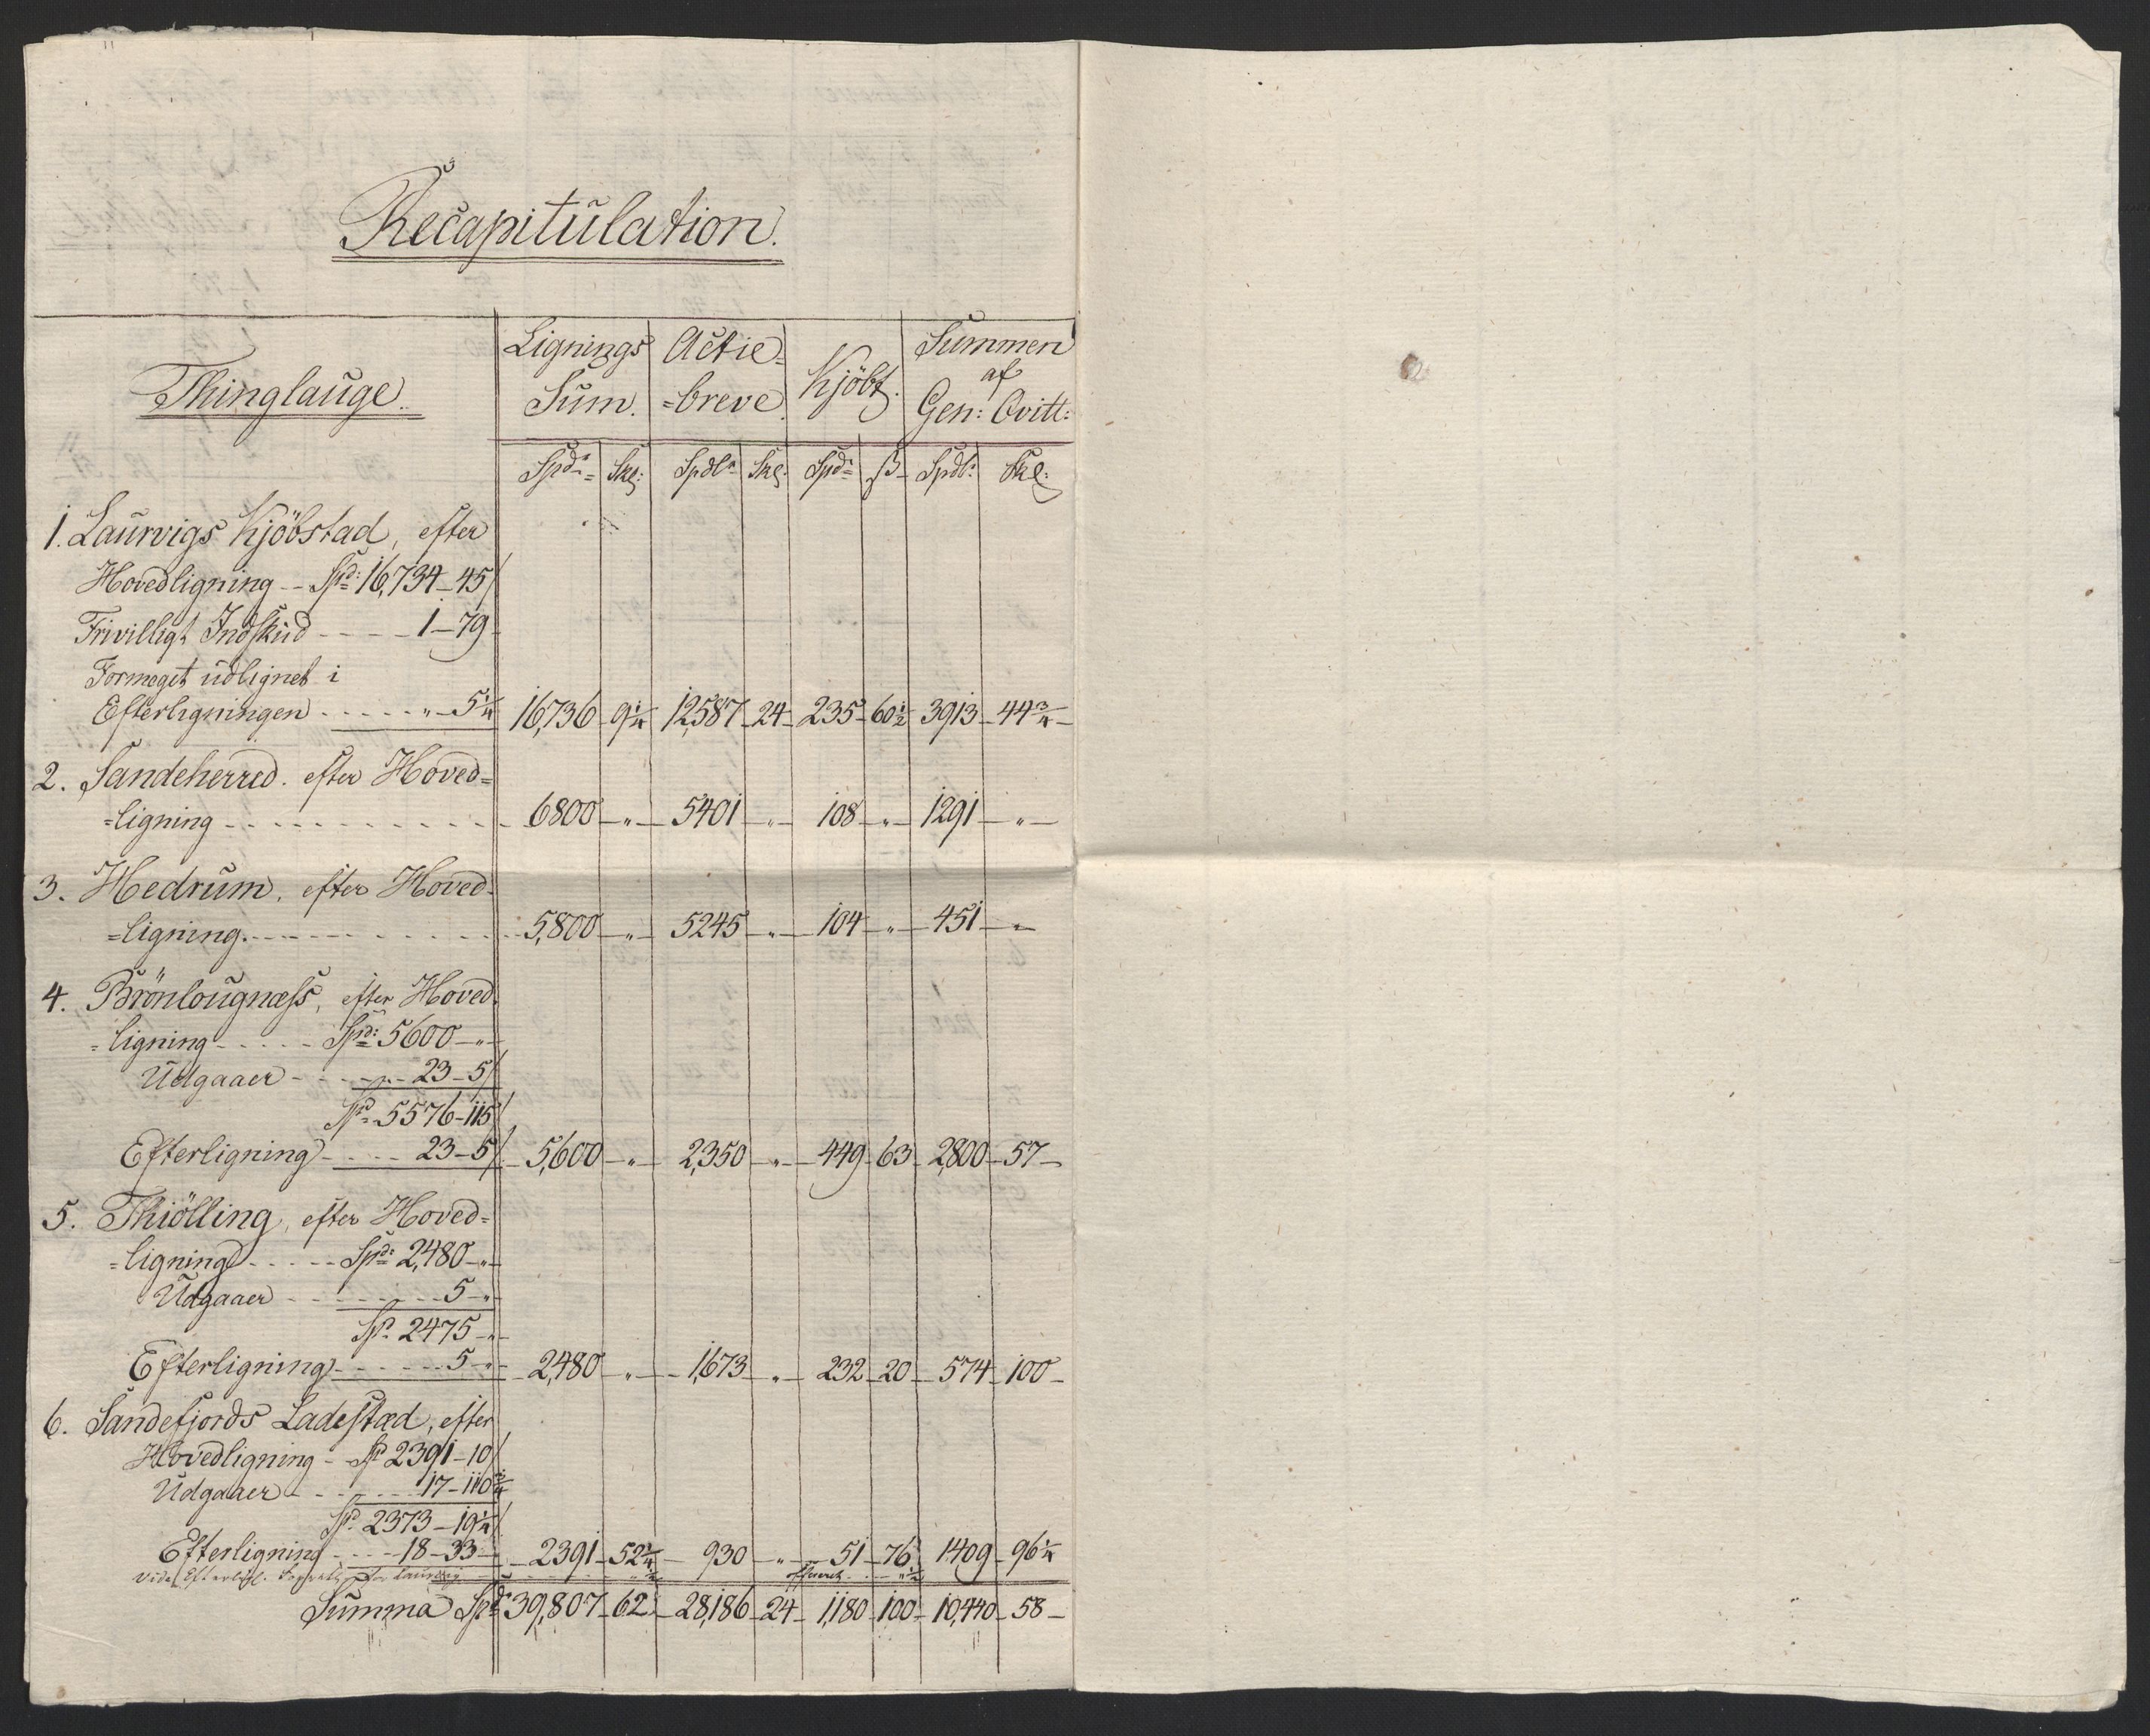 Recapitulation.
Thinglauge. Lignings Sum. Actie= =breve Kjöbt. Summen af Gen: Qvitt:
Spd: Skl: Spdl: Skl: Spd: ß Spdl: Skl:
1. Laurvigs Kjöbstad, efter
Hovedligning -- Spd: 16,734-45
Frivilligt Indskud ---- 1-79
Formeget udlignet i
Efterligningen ----- „ 5 1/4 16,736 - 9 1/4 12,587 - 24 - 235 - 60 1/2 3913 - 44 3/4 -
2. Sandeherred. efter Hoved=
=ligning ------------ 6800 - „ - 5401 - „ - 108 - „ - 1291 - „ -
3. Hedrum. efter Hoved=
=ligning. ----------- 5,800 - „ - 5245 - „ - 104 - „ - 451 - „
4. Brönlougnæss, efter Hoved
=ligning ----- Spd: 5600 - „ -
Udgaaer ------ 23-5
Spd 5576-115
Efterligning ---- 23-5 - 5,600 - „ - 2,350 - „ - 449 - 63 - 2,800 - 57 -
5. Thiölling, efter Hoved=
=ligning ----- Spd: 2,480 - „ -
Udgaaer -------- 5 - „
Sp. 2475 - „ -
Efterligning ------ 5 - „ - 2,480 - „ - 1,673 - „ - 232 - 20 - 574 - 100 -
6. Sandefjords Ladestæd, efter
Hovedligning - Sp 2391-10
Udgaaer ------ 17-110 3/4
Sp. 2373-19 1/4
Efterligning ---- 18-33 - 2391 - 52 1/4 - 930 - „ - 51 - 76 1409 - 96 1/4
vide
Summa Spd 39,807 - 62 - 28,186 - 24 - 1,180 - 100 - 10,440 - 58 -